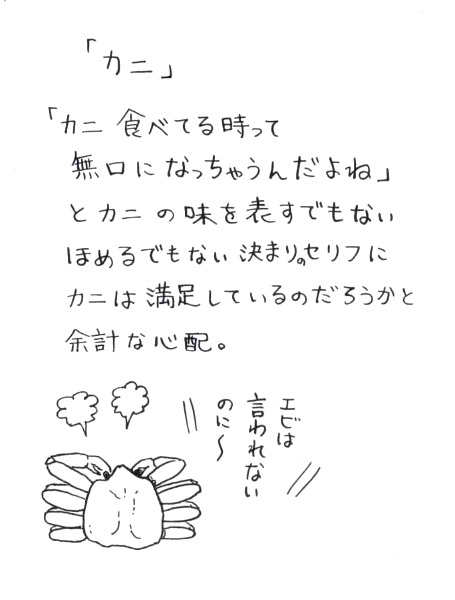 「カニ」
「カニ 食べてる時って
無口になっちゃうんだよね」
とカニの味を表すでもない
ほめるでもない決まりのセリフに
カニは満足しているのだろうかと
余計な心配。
エビは
言われない
のに〜